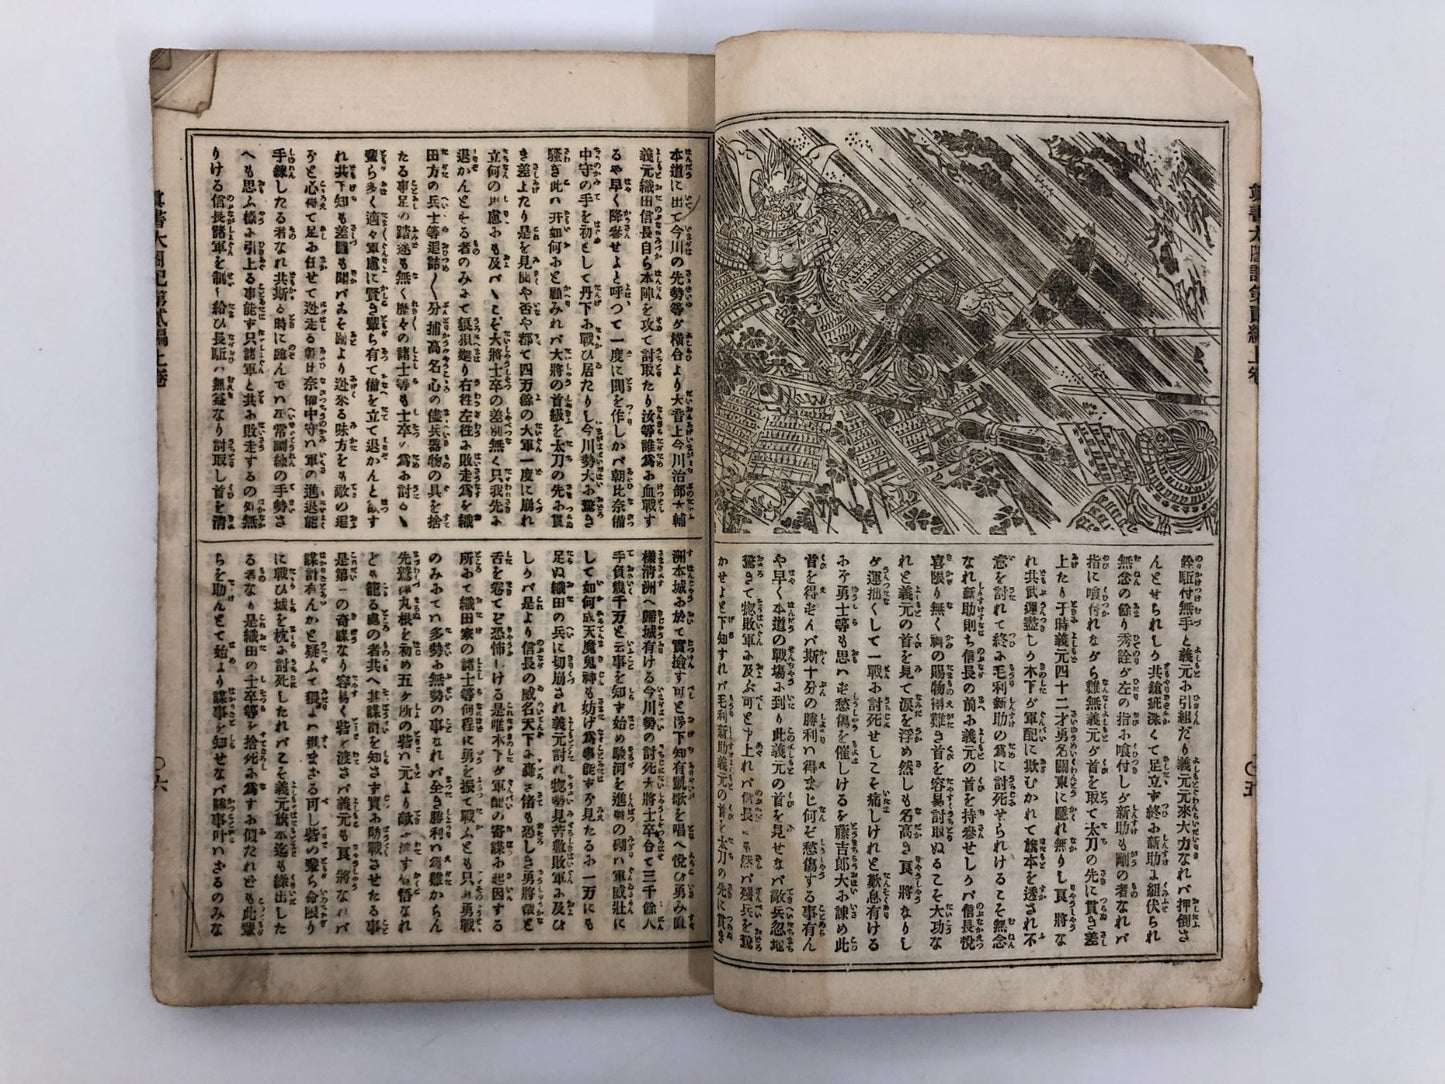 乗駈付無手と義元に引組だり義元元來大力なれバ押倒さ
んとせられしり共鎗疵深くて足立ず終に新助に組伏られ
無念の餘り秀詮が左の指に喰付しが新助も剛の者なれバ
指に喰付れながら難無義元が首を取て太刀の先に貫き差
上たり于時義元四十二才勇名關東に隱れ無りし良將な
れ共武運盡しり木下が軍配に欺むかれて旗本を透され不
意を討れて終に毛利新助の爲に討死せられけるこそ無念
なれ新助則ち信長の前に義元の首を持參せしりバ信長悦
喜限り無く褥の賜物得難き首を容易討取ぬるこそ大功な
れと義元の首を見て涙を浮め然しも名高き良將なりし
が運拙くして一戰に討死せしこそ痛しけれと歎息有ける
に勇士等も思ハず愁傷を催しけるを藤吉郎大に諫め此
首を得ずんバ斯十分の勝利ハ得まじ何ぞ愁傷する事有ん
や早く本道の戰塲に到り此義元の首を見せなバ敵兵忽地
驚きて惣敗軍に及ぶ可しと申上れバ信長にも然バ殘兵を驚
かせよと下知すれバ毛利新助義元の首を太刀の先に貫き
本道に出て今川の先勢等が横合より大音上今川治部大輔
義元織田信長自ら本陣を攻て討取たり汝等誰爲に血戰す
るや早く降參せよと呼つて一度に鬨を作しかバ朝比奈備
中守の手を初として丹下に戰ひ居たりし今川勢大に驚き
騷ぎ此ハ开如何にと顧みれバ大將の首級を太刀の先に貫
き差上たり是を見聞や否や都て四万餘の大軍一度に崩れ
立何の思慮にも及バずこそ大將士卒の差別無く只我先に
退かんとする者のみにて狼狽廻り右往左往に敗走爲を織
田方の兵士等追詰〱分捕高名心の儘兵器物の具を捨
たる事足の踏途も無く歷々の諸士等も士卒の爲に討るゝ
輩ら多く適々軍慮に賢き輩ら有て備を立て退かんと爲す
れ共下知も差圖も聞バこそ跡より迯來る味方をも敵の追
ふと心得て足に任せて迯走る朝比奈備中守ハ軍の進退能
手練したる者なれ共斯る時に臨んでハ平常調練の手勢さ
へも思ふ樣に引上る事能ず只諸軍と共に敗走するのみ無
りける信長諸軍を制し給ひ長駈ハ無益なり討取し首を淸
洲本城に於て實撿す可と下知有凱歌を唱へ悅び勇み直
樣淸洲へ歸城有ける今川勢の討死大將士卒合て三千餘人
手負幾千万と云事を知ず始め駿河を進發の砌ハ軍威壯に
して如何成天魔鬼神も妨げ爲事能ず見たるに一万にも
足ぬ織田の兵に切崩され義元討れ惣勢見苦敷敗軍に及び
しりバ是より信長の威名天下に轟き偖も恐しき勇將哉と
舌を卷てぞ恐怖しける是唯木下が軍配の奇謀に起因する
所にて織田家の諸士等何程に勇を振て戰ふとも只血勇戰
のみにてハ多勢に無勢の事なれバ全き勝利ハ爲難からん
先鷲津丸根を初め五ケ所の砦ハ元より敵に渡す覺悟なれ
ども籠る處の者共へ其謀計を知さず實に助戰させたる事
是第一の奇謀なり容易く砦を渡さバ義元も良將なれバ
謀計有んかと疑ふて猥にハ進まざる可し砦の輩ら命限り
に戰ひ城を枕に討死したれバこそ義元旗本迄も繰出した
る者なり是織田の士卒等を捨死に爲すに似たれども此輩
らを助んとて始より謀事を知せなバ謀事叶ハざるのみな
眞書太閤記第貳編上卷
〇五
眞書太閤記第貳編上卷
〇六